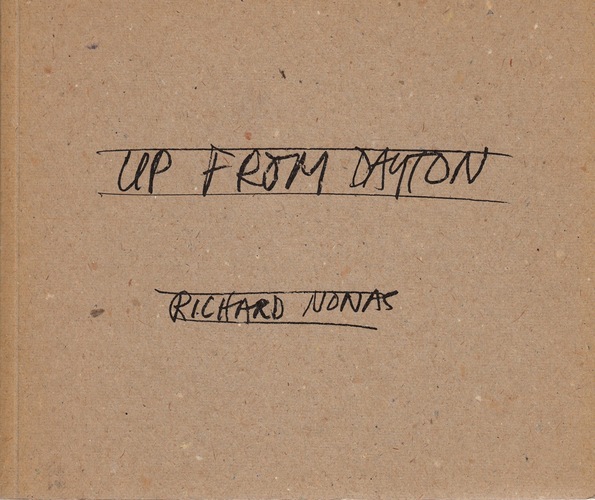 UP FROM DAYTON
RICHARD NONAS